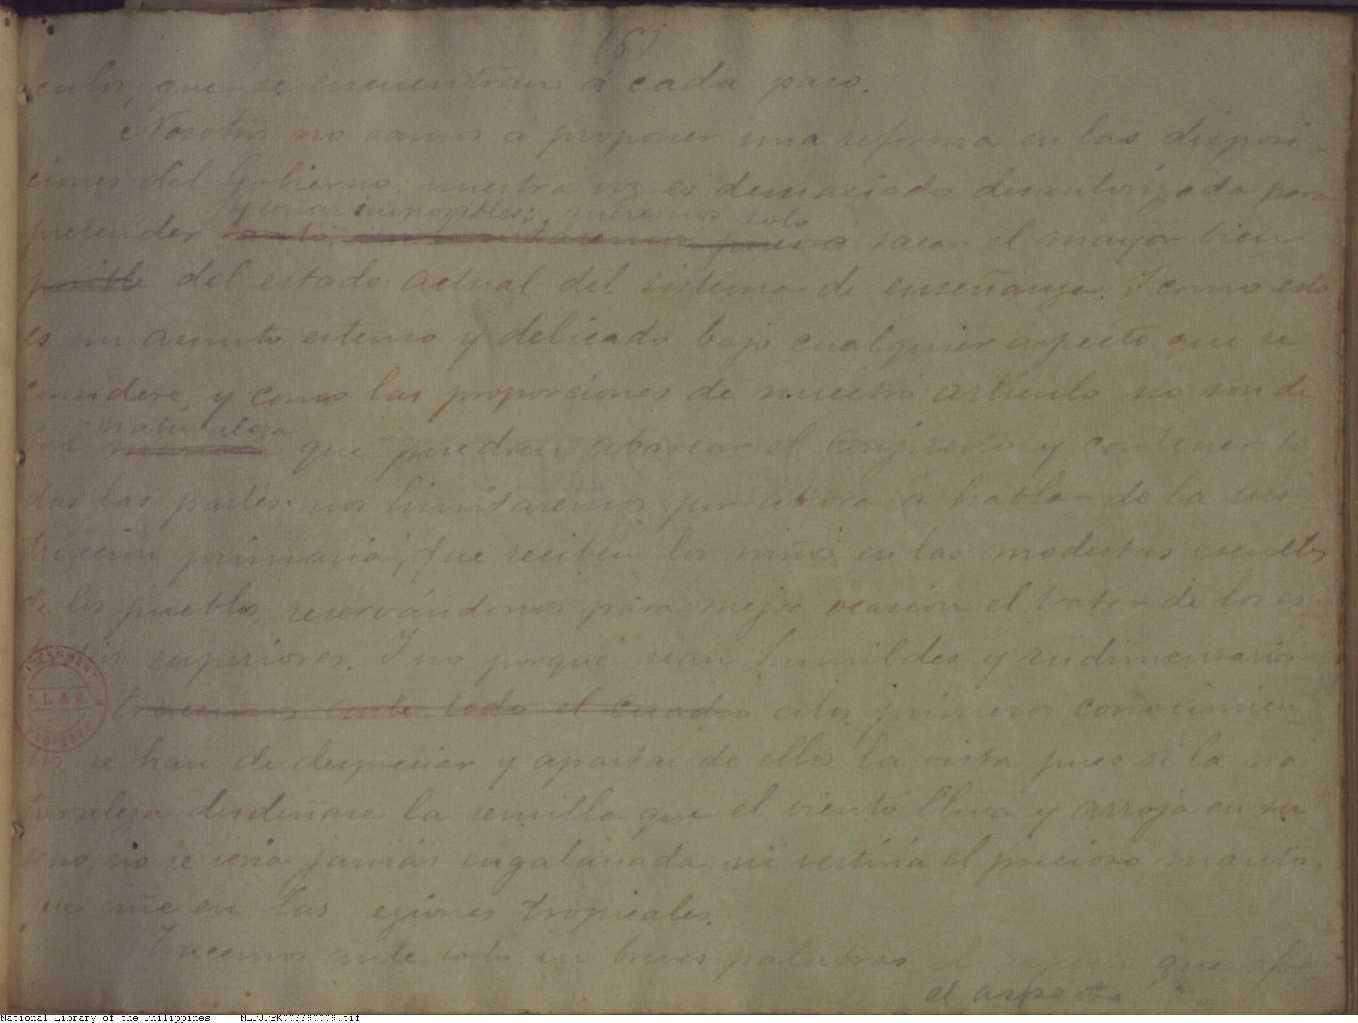 (6)
culos, que se encuentran á cada paso.
Nosotros no vamos a proponer una reforma en las disposi-
ciones del Gobierno, nuestra voz es demaciado desautorizada para
y cosas imposibles; queremos solo
pretender sacar el mayor bien
posible del estado actual del sistema de enseñanza. Y como esto
es un asunto estenso y delicado bajo cualquier aspecto que se
considere, y como las proporciones de nuestro artículo no son de
naturaleza
tal que puedan abarcar el conjunto y contener to
das las partes, nos limitaremos por ahora á hablar de la ins
trucción primaria, que reciben los niños en las modestas escuelas
de los pueblos, reservándonos para mejor ocasión el tratar de los es
tudios superiores. Y no porque sean humildes y rudimentarios
tracemos ante todo el cuadro estos primeros conocimien
tos se han de despreciar y apartar de ellos la vista pues si la na
turaleza desdeñase la semilla que el viento lleva y arroja en su
seno, no se vería jamás engalanada ni vestiría el precioso manto,
que ciñe en las regiones tropicales.
Tracemos ante todo en breves palabras que ofre
el aspecto
National Library of the Philippines